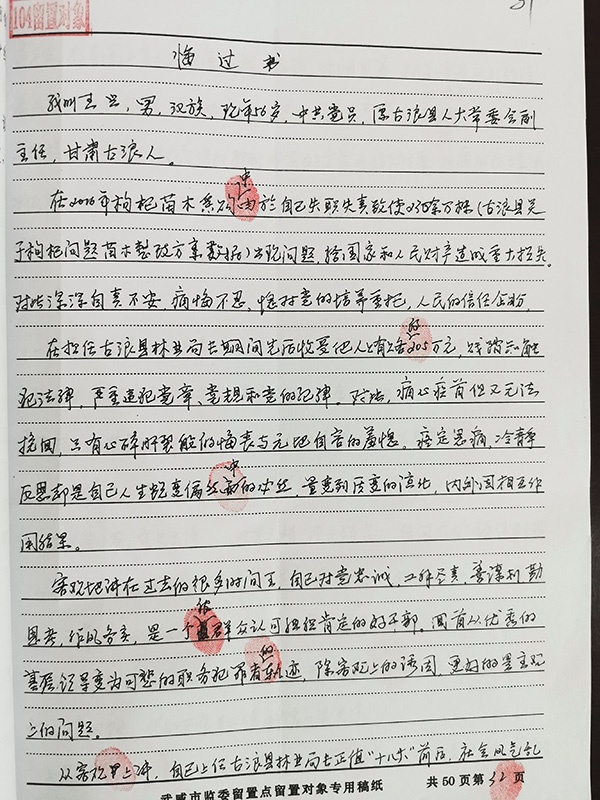 104留置对象
31
悔过书
我叫王兴，男，汉族，现年56岁，中共党员，原古浪县人大常委会副
主任，甘肃古浪人。
在2016年枸杞苗木采购中由於自己失职失责致使2300余万株（古浪县关
于枸杞问题苗木整改方案数据）出现问题，给国家和人民财产造成重大损失。
对此深深自责不安，痛悔不忍，愧对党的培养重托，人民的信任企盼，
在担任古浪县林业局长期间先后收受他人的205万元，践踏和触
犯法律，严重违犯党章、党规和党的纪律。对此，痛心疾首但又无法
挽回，只有心碎肝裂般的悔丧与无地自容的羞愧。痛定思痛，冷静
反思却是自己人生蜕变偏差中的必然，量变到质变的演化，内外因相互作
用结果。
客观地讲在过去的很多时间里，自己对党忠诚，工作尽责，善谋利勤
思考，作风务实，是一个被群众认可组织肯定的好干部。回首从优秀的
基层领导变为可憎的职务犯罪者的轨迹，除客观上的诱因，更好的是主观
上的问题。
从客观上讲，自己上任古浪县林业局长正值“十八大”前后，社会风气乱
武威市监委留置点留置对象专用稿纸
共50页第32页